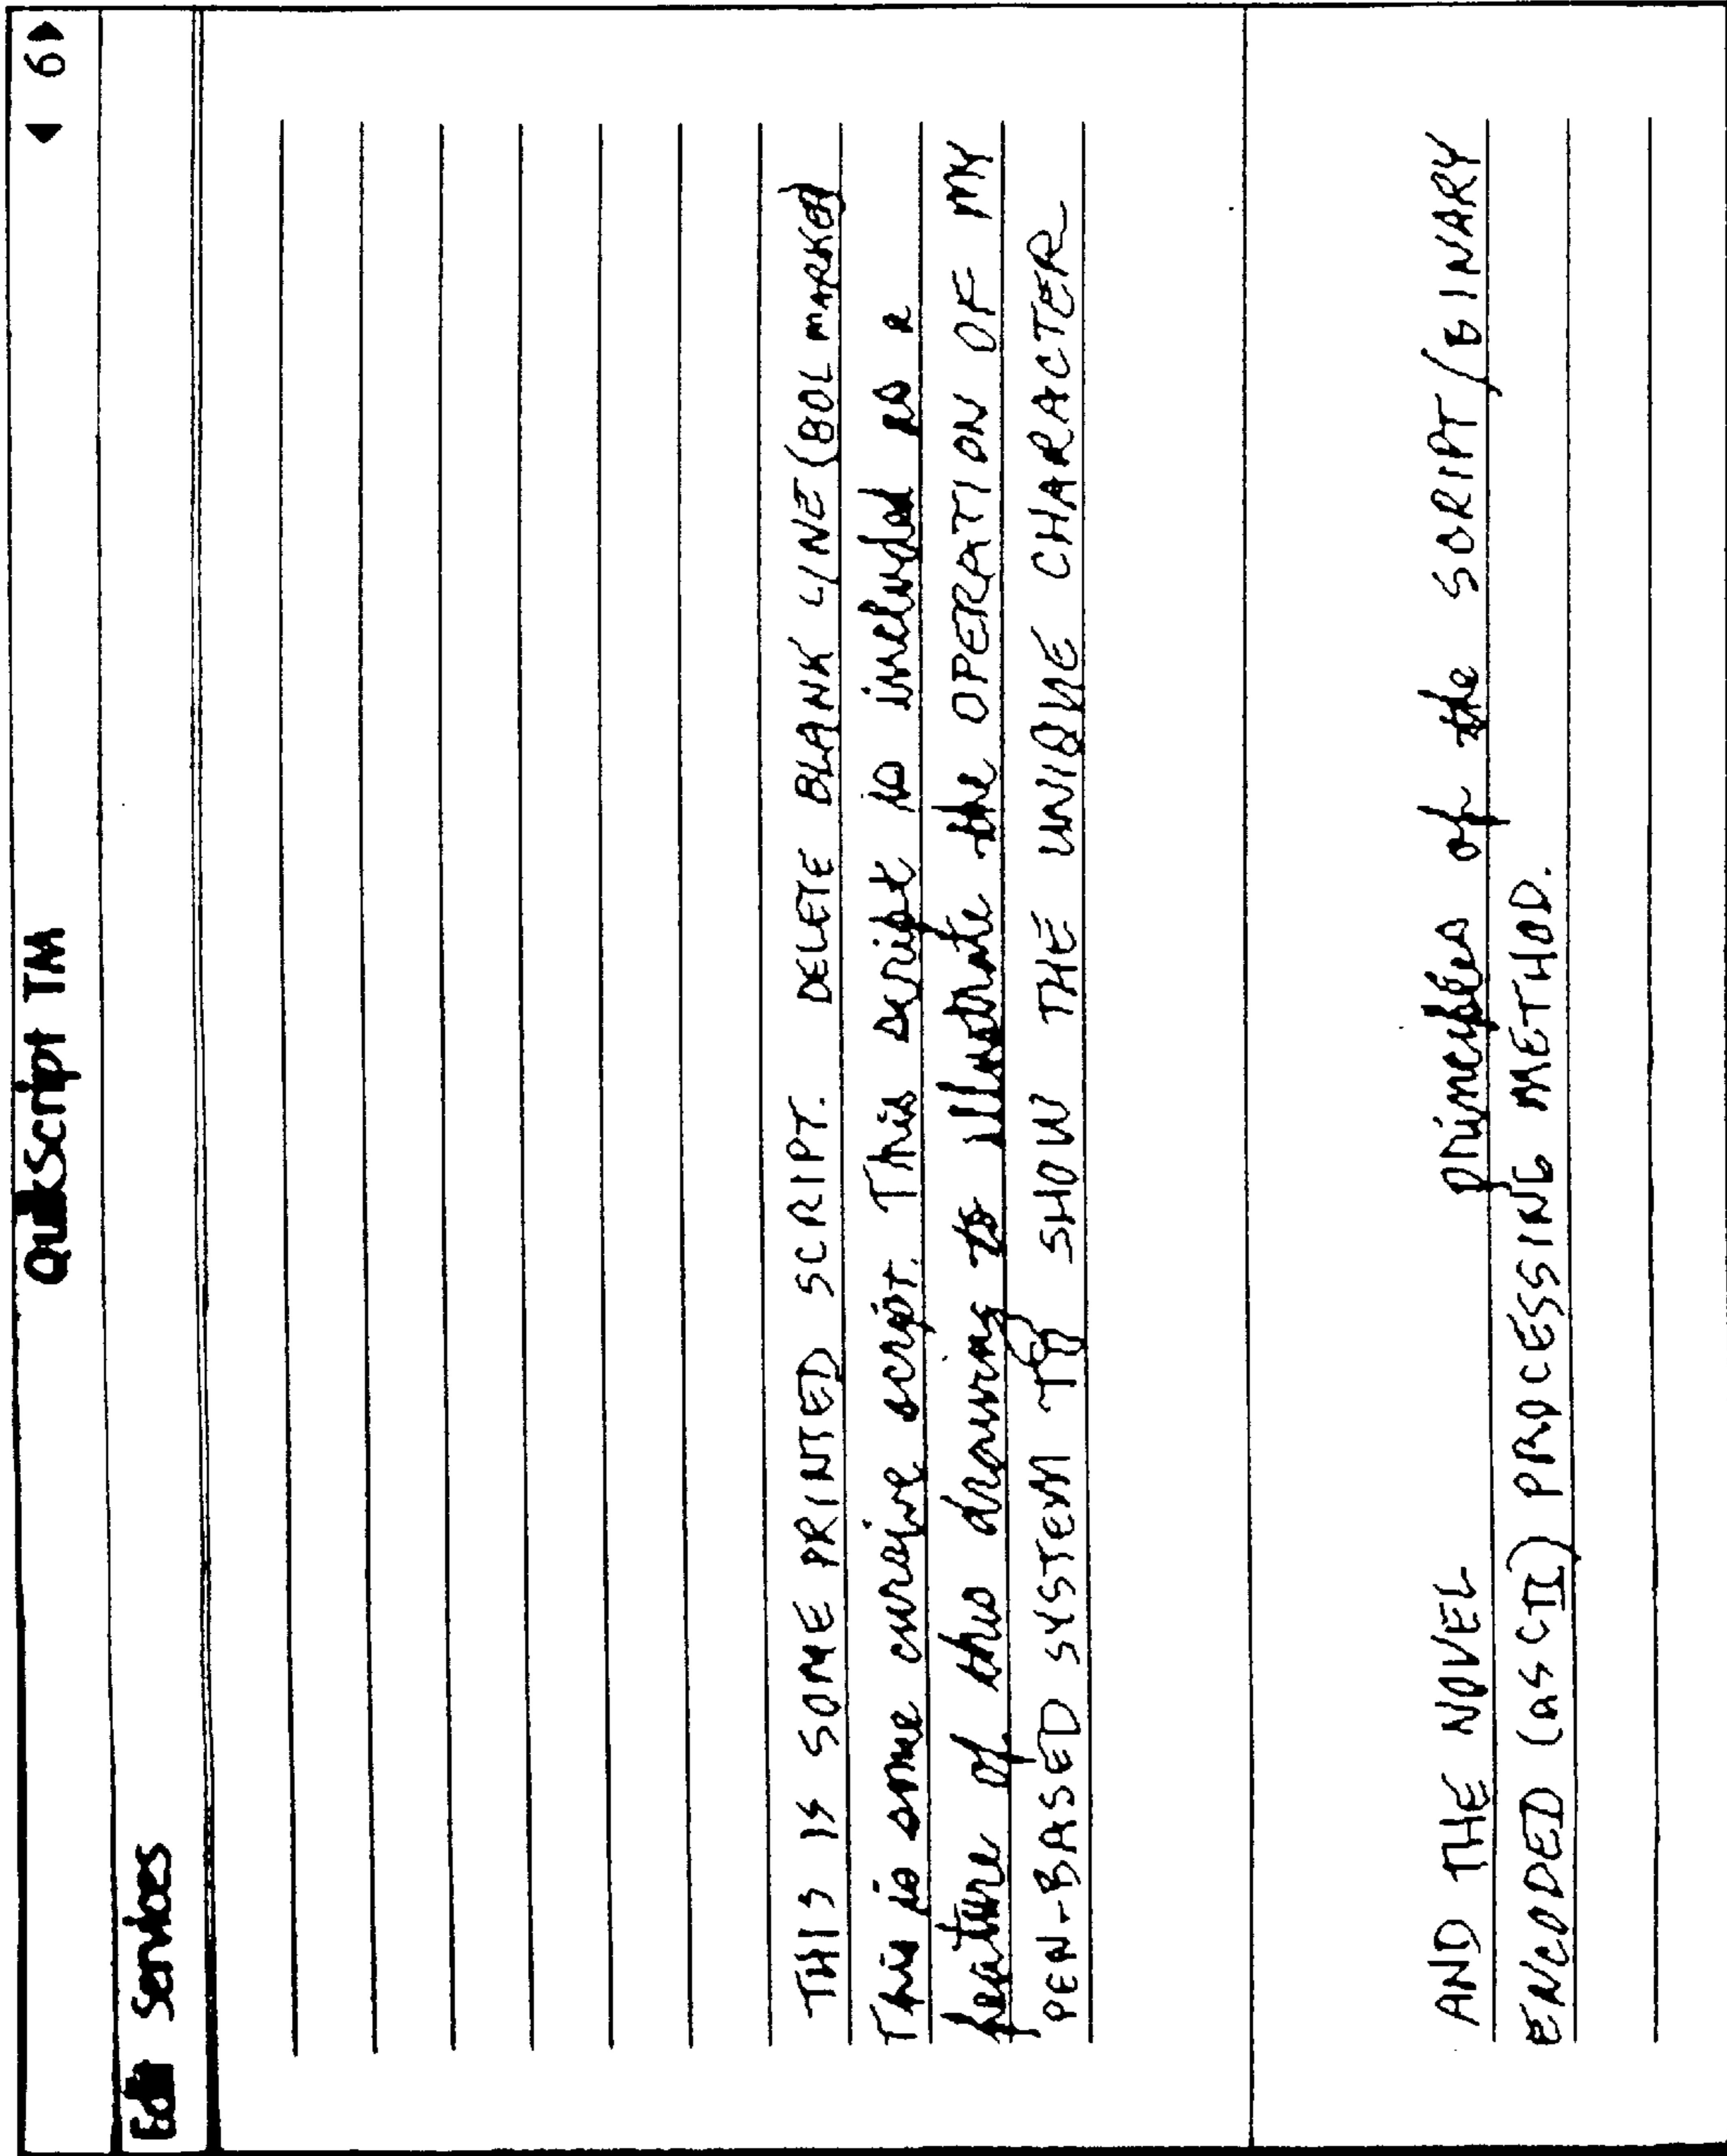 QuikScript TM ◀ 6▶
Edit Services
THIS IS SOME PRINTED SCRIPT. DELETE BLANK LINE (BOL MARKER)
This is some cursive script. This script is included as a
feature of this drawing to illustrate the OPERATION OF MY
PEN-BASED SYSTEM TO SHOW THE UNIQUE CHARACTER
AND THE NOVEL principles of the SCRIPT/BINARY
ENCODED (ASCII) PROCESSING METHOD.